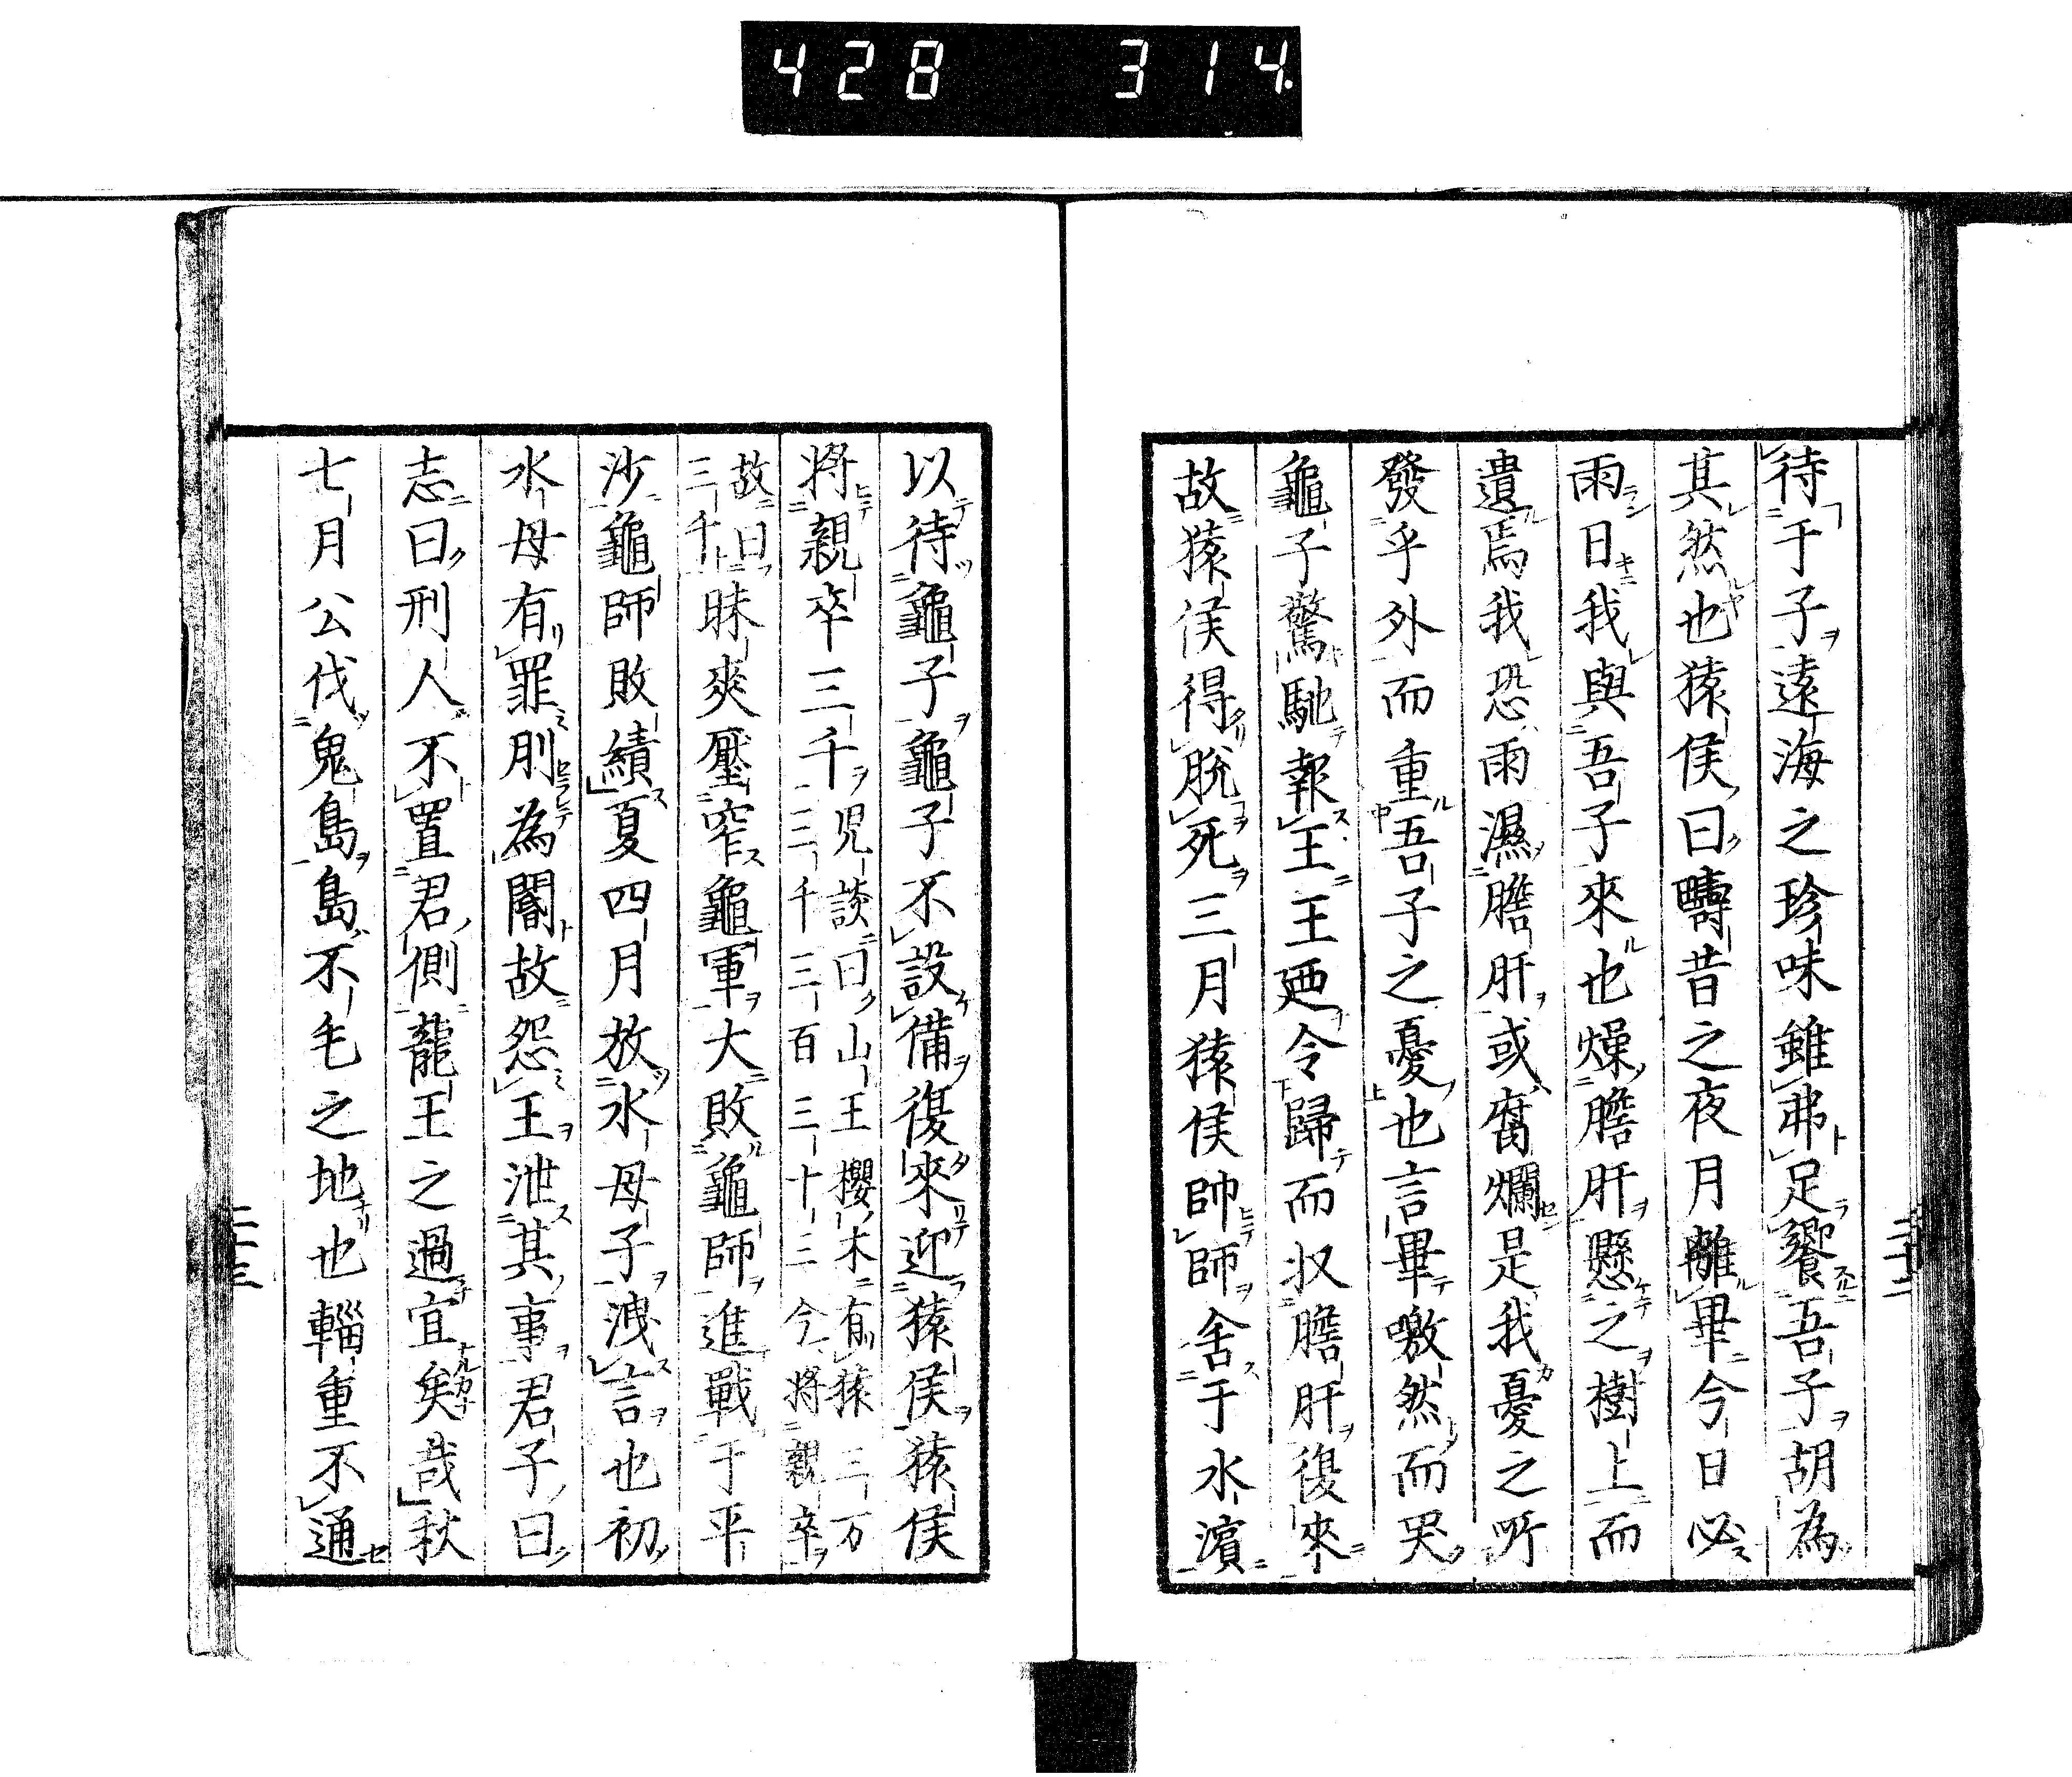 428 314.
待于子遠海之珍味雖弗足饗吾子胡為
其然也猿侯曰疇昔之夜月離畢今日必
雨日我與吾子來也燥膽肝懸之樹上而
遺焉我恐雨濕膽肝或腐爛是我憂之所
發乎外而重吾子之憂也言畢噭然而哭
龜子驚馳報王王廼令歸而収膽肝復來
故猿侯得脫死三月猿侯帥師舍于水濱
二十二
以待龜子龜子不設備復來迎猿侯猿侯
將親卒三千児談曰山王櫻木有猿三万三千三百三十三今將親卒
三千故曰昧爽壓窄龜軍大敗龜師進戰于平
沙龜師敗績夏四月放水母子洩言也初
水母有罪刖為閽故怨王泄其事君子曰
志曰刑人不置君側龍王之過宜矣哉秋
七月公伐鬼島島不毛之地也輜重不通
二十三